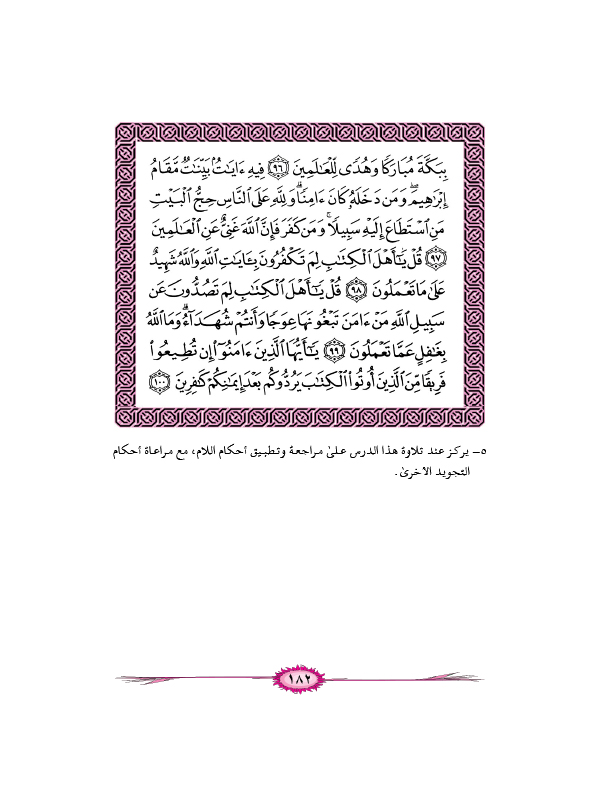 بِبَكَّةَ مُبَارَكًا وَهُدًى لِّلْعَالَمِينَ ﴿٩٦﴾ فِيهِ ءَايَاتٌ بَيِّنَاتٌ مَّقَامُ
إِبْرَاهِيمَ ۖ وَمَن دَخَلَهُۥ كَانَ ءَامِنًا ۗ وَلِلَّهِ عَلَى النَّاسِ حِجُّ الْبَيْتِ
مَنِ اسْتَطَاعَ إِلَيْهِ سَبِيلًا ۚ وَمَن كَفَرَ فَإِنَّ اللَّهَ غَنِيٌّ عَنِ الْعَالَمِينَ
﴿٩٧﴾ قُلْ يَٰٓأَهْلَ الْكِتَابِ لِمَ تَكْفُرُونَ بِـَٔايَاتِ اللَّهِ وَاللَّهُ شَهِيدٌ
عَلَىٰ مَا تَعْمَلُونَ ﴿٩٨﴾ قُلْ يَٰٓأَهْلَ الْكِتَابِ لِمَ تَصُدُّونَ عَن
سَبِيلِ اللَّهِ مَنْ ءَامَنَ تَبْغُونَهَا عِوَجًا وَأَنتُمْ شُهَدَآءُ ۗ وَمَا اللَّهُ
بِغَافِلٍ عَمَّا تَعْمَلُونَ ﴿٩٩﴾ يَٰٓأَيُّهَا الَّذِينَ ءَامَنُوٓا۟ إِن تُطِيعُوا۟
فَرِيقًا مِّنَ الَّذِينَ أُوتُوا۟ الْكِتَابَ يَرُدُّوكُم بَعْدَ إِيمَانِكُمْ كَافِرِينَ ﴿١٠٠﴾
٥– يركز عند تلاوة هذا الدرس علىٰ مراجعة وتطبيق أحكام اللام، مع مراعاة أحكام
التجويد الأخرىٰ.
١٨٢